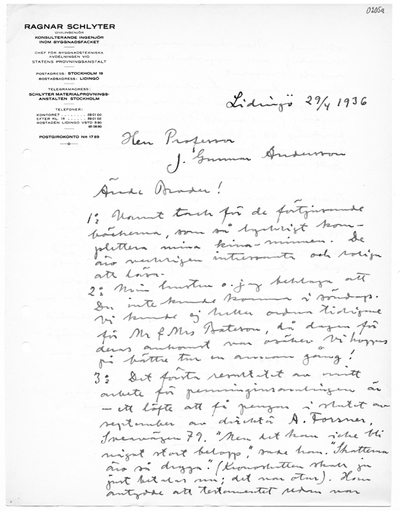 0205a
RAGNAR SCHLYTER
CIVILINGENJÖR
KONSULTERANDE INGENJÖR
INOM BYGGNADSFACKET
CHEF FÖR BYGGNADSTEKNISKA
AVDELNINGEN VID
STATENS PROVNINGSANSTALT
POSTADRESS: STOCKHOLM 19
BOSTADSADRESS: LIDINGÖ
TELEGRAMADRESS:
SCHLYTER MATERIALPROVNINGS-
ANSTALTEN STOCKHOLM
TELEFONER:
KONTORET
EFTER KL.
BOSTADEN LIDINGÖ VSTO
POSTGIROKONTO N:R 1765
Lidingö 29/4 1936
Herr Professor
J. Gunnar Andersson
Ärade Broder!
1: Varmt tack för de förtjusande
böckerna, som så lyckligt kom-
plettera mina kina-minnen. De
äro verkligen intressanta och roliga
att läsa.
2: Min hustru o. jag beklaga att
Du inte kunde komma i söndags.
Vi kunde ej heller ordna tidigare
för Mr & Mrs Bateson, då dagen för
deras ankomst var osäker. Vi hoppas
på bättre tur en annan gång!
3: Det första resultatet av mitt
arbete för penninginsamlingen är
- ett löfte att få pengar i slutet av
september av direktör A. Forsner,
Sveavägen 79. "Men det kan icke bli
något stort belopp", sade han. "Skatterna
äro så dryga." (Kvarskatten skall ju
just betalas nu; det var otur). Han
antydde att testamentet redan var